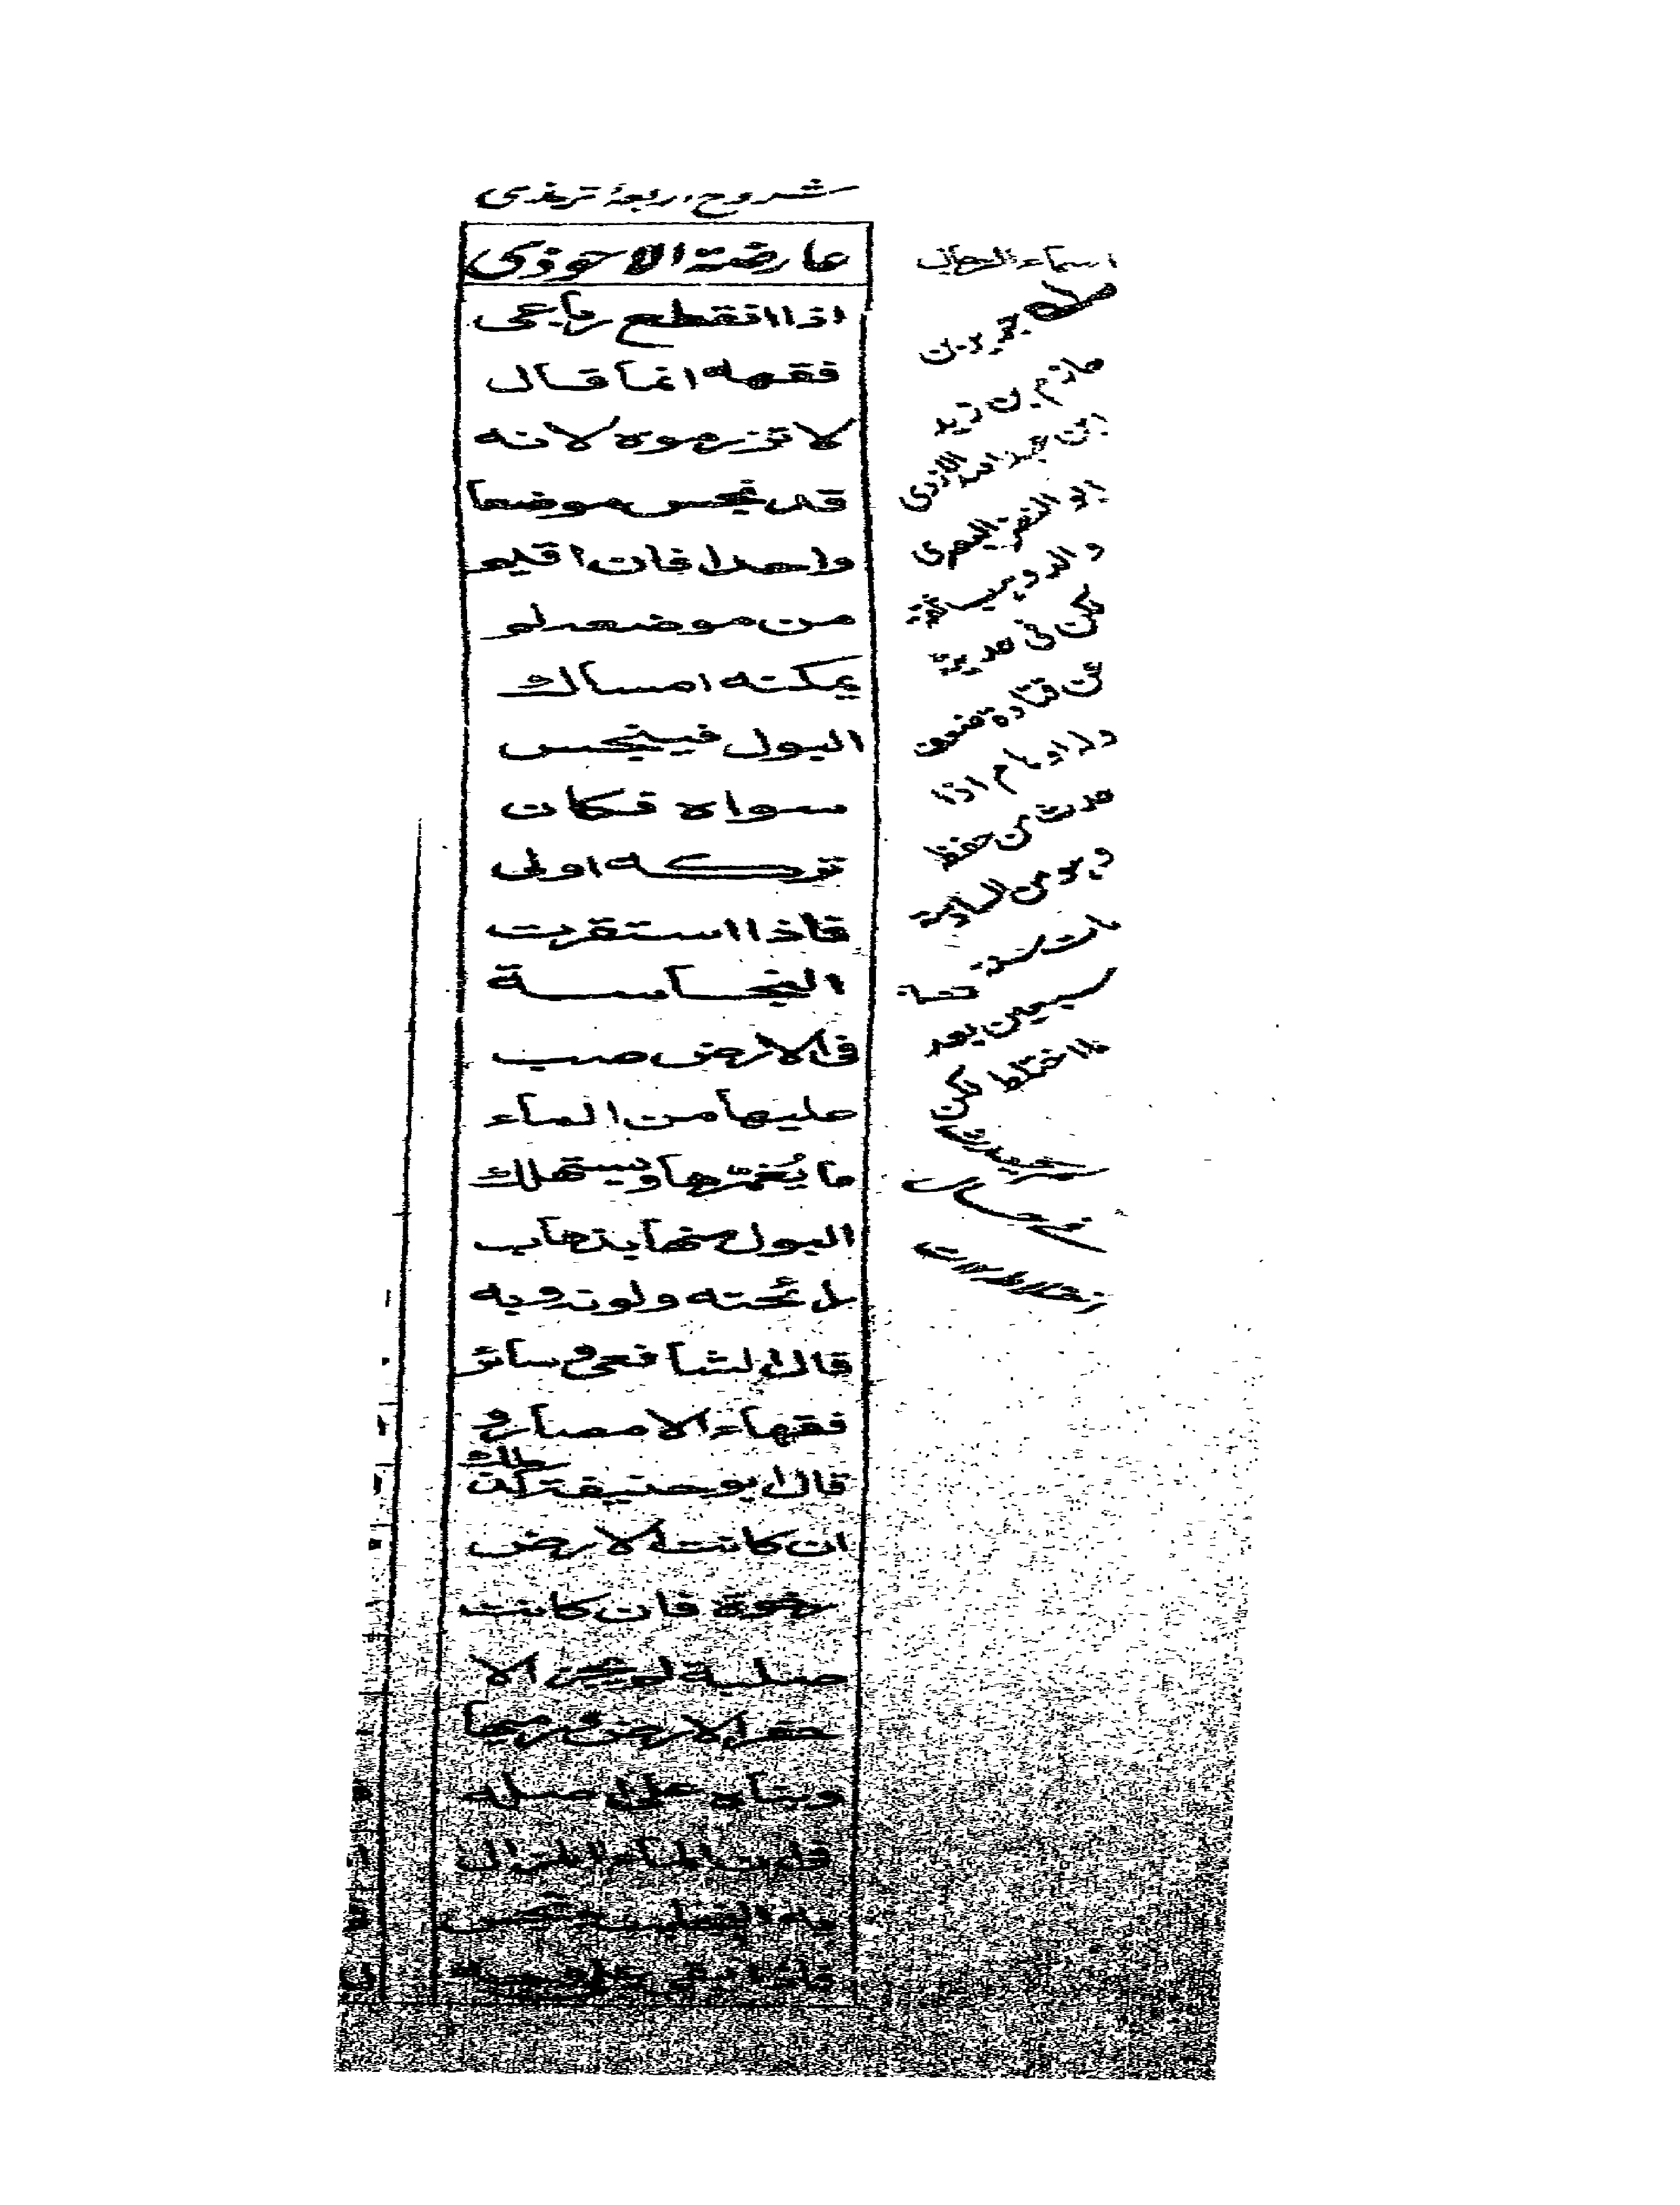 شروح اربعۂ ترمذی
عارضة الاحوذی
اذا انقطع رباعی
فقهه انما قال
لا تزرموه لانه
قد نجس موضعا
واحدا فان اقلیم
من موضعه لم
یمکنه امساك
البول فینجس
سواه فکان
ترکه اولی
فاذا استقرت
النجاسة
فی الارض صب
علیها من الماء
ما یُغمّرها ویستهلك
البول منها بذهاب
رائحته ولونه وبه
قال الشافعی وسائر
فقهاء الامصار و
قال ابو حنیفة كذلك
ان کانت الارض
رخوة فان کانت
صلبة لم یجز الا
حفر الارض ورمیها
وبناه علی اصله
فی ان الماء المزال
به النجاسة نجس
اسماء الرجال
صله جریر بن
حازم بن زید
ابن عبد الله الازدی
ابو النضر البصری
والد وهب ثقة
لکن فی حدیثه
عن قتادة ضعف
وله اوهام اذا
حدث من حفظه
وهو من السادسة
مات سنة
سبعین بعد
ما اختلط لکن
لم یحدث
فی حال
اختلاطه